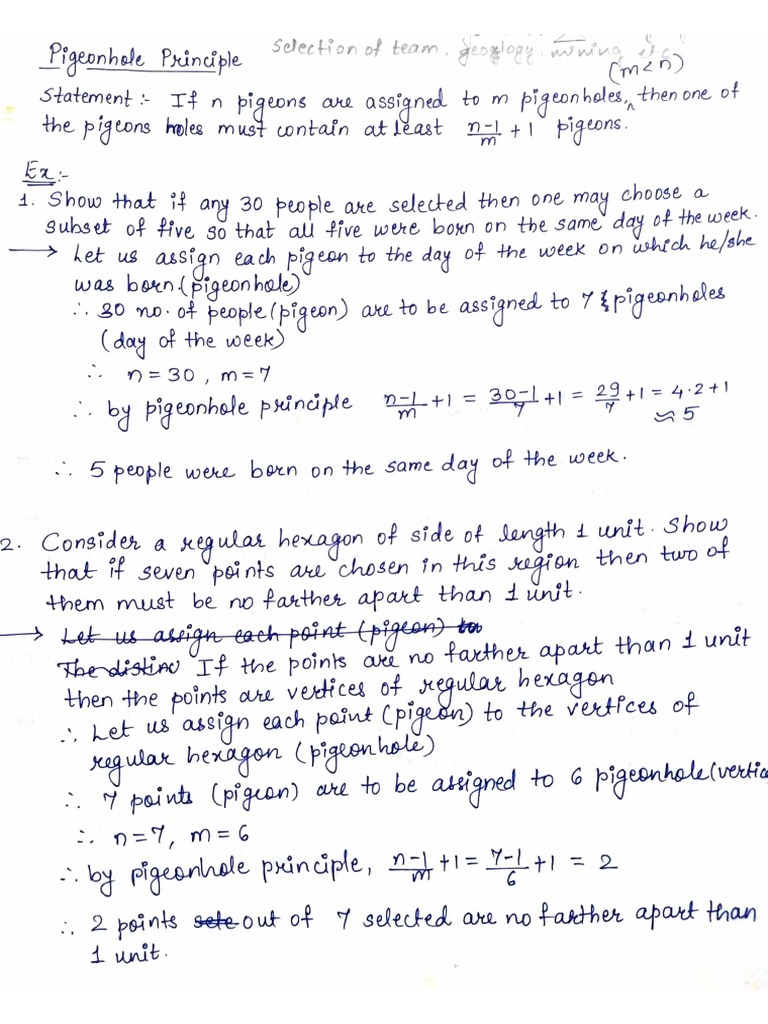 Pigeonhole Principle selection of team, geology, mining, etc
(m<n)
Statement :- If n pigeons are assigned to m pigeonholes, then one of
the pigeons holes must contain at least n-1/m + 1 pigeons.
Ex:-
1. Show that if any 30 people are selected then one may choose a
subset of five so that all five were born on the same day of the week.
→ Let us assign each pigeon to the day of the week on which he/she
was born (pigeonhole)
∴ 30 no. of people (pigeon) are to be assigned to 7 pigeonholes
(day of the week)
∴ n = 30 , m = 7
∴ by pigeonhole principle n-1/m + 1 = 30-1/7 + 1 = 29/7 + 1 = 4.2 + 1
≈ 5
∴ 5 people were born on the same day of the week.
2. Consider a regular hexagon of side of length 1 unit. Show
that if seven points are chosen in this region then two of
them must be no farther apart than 1 unit.
→ Let us assign each point (pigeon) to
The distinc If the points are no farther apart than 1 unit
then the points are vertices of regular hexagon
∴ Let us assign each point (pigeon) to the vertices of
regular hexagon (pigeonhole)
∴ 7 points (pigeon) are to be assigned to 6 pigeonhole (vertic
∴ n = 7, m = 6
∴ by pigeonhole principle, n-1/m + 1 = 7-1/6 + 1 = 2
∴ 2 points out of 7 selected are no farther apart than
1 unit.